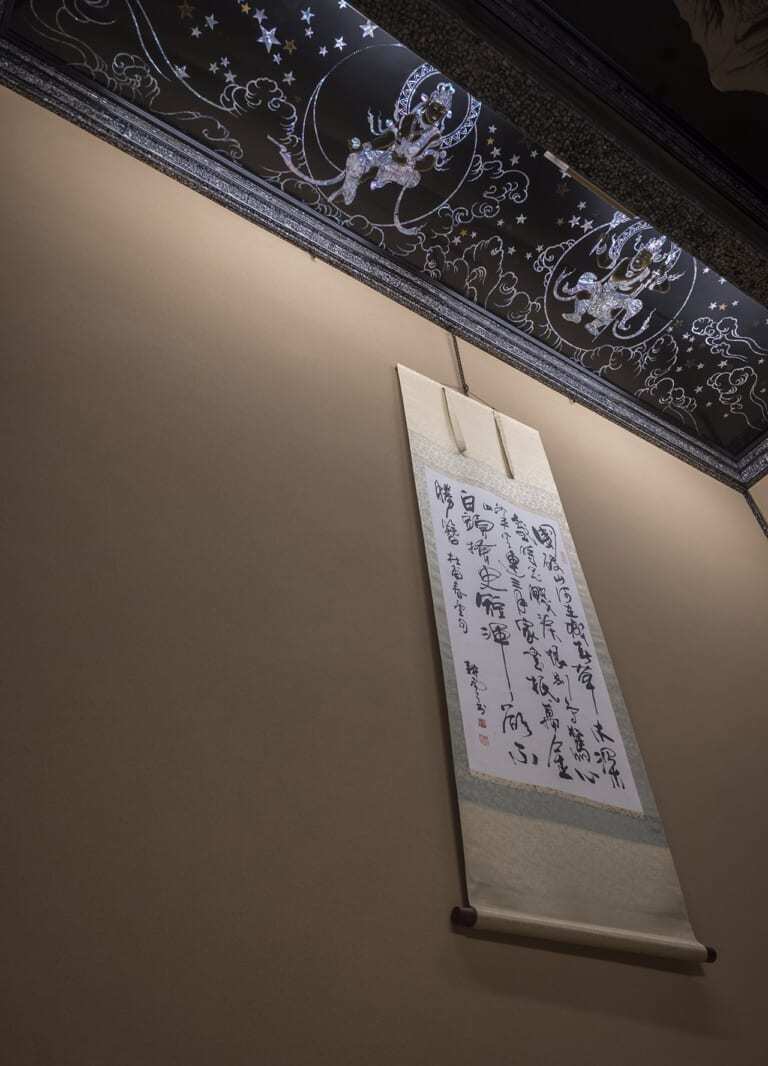 國破山河在城春草木深
感時花濺淚恨別鳥驚心
烽火連三月家書抵萬金
白頭搔更短渾欲不
勝簪 杜甫春望句